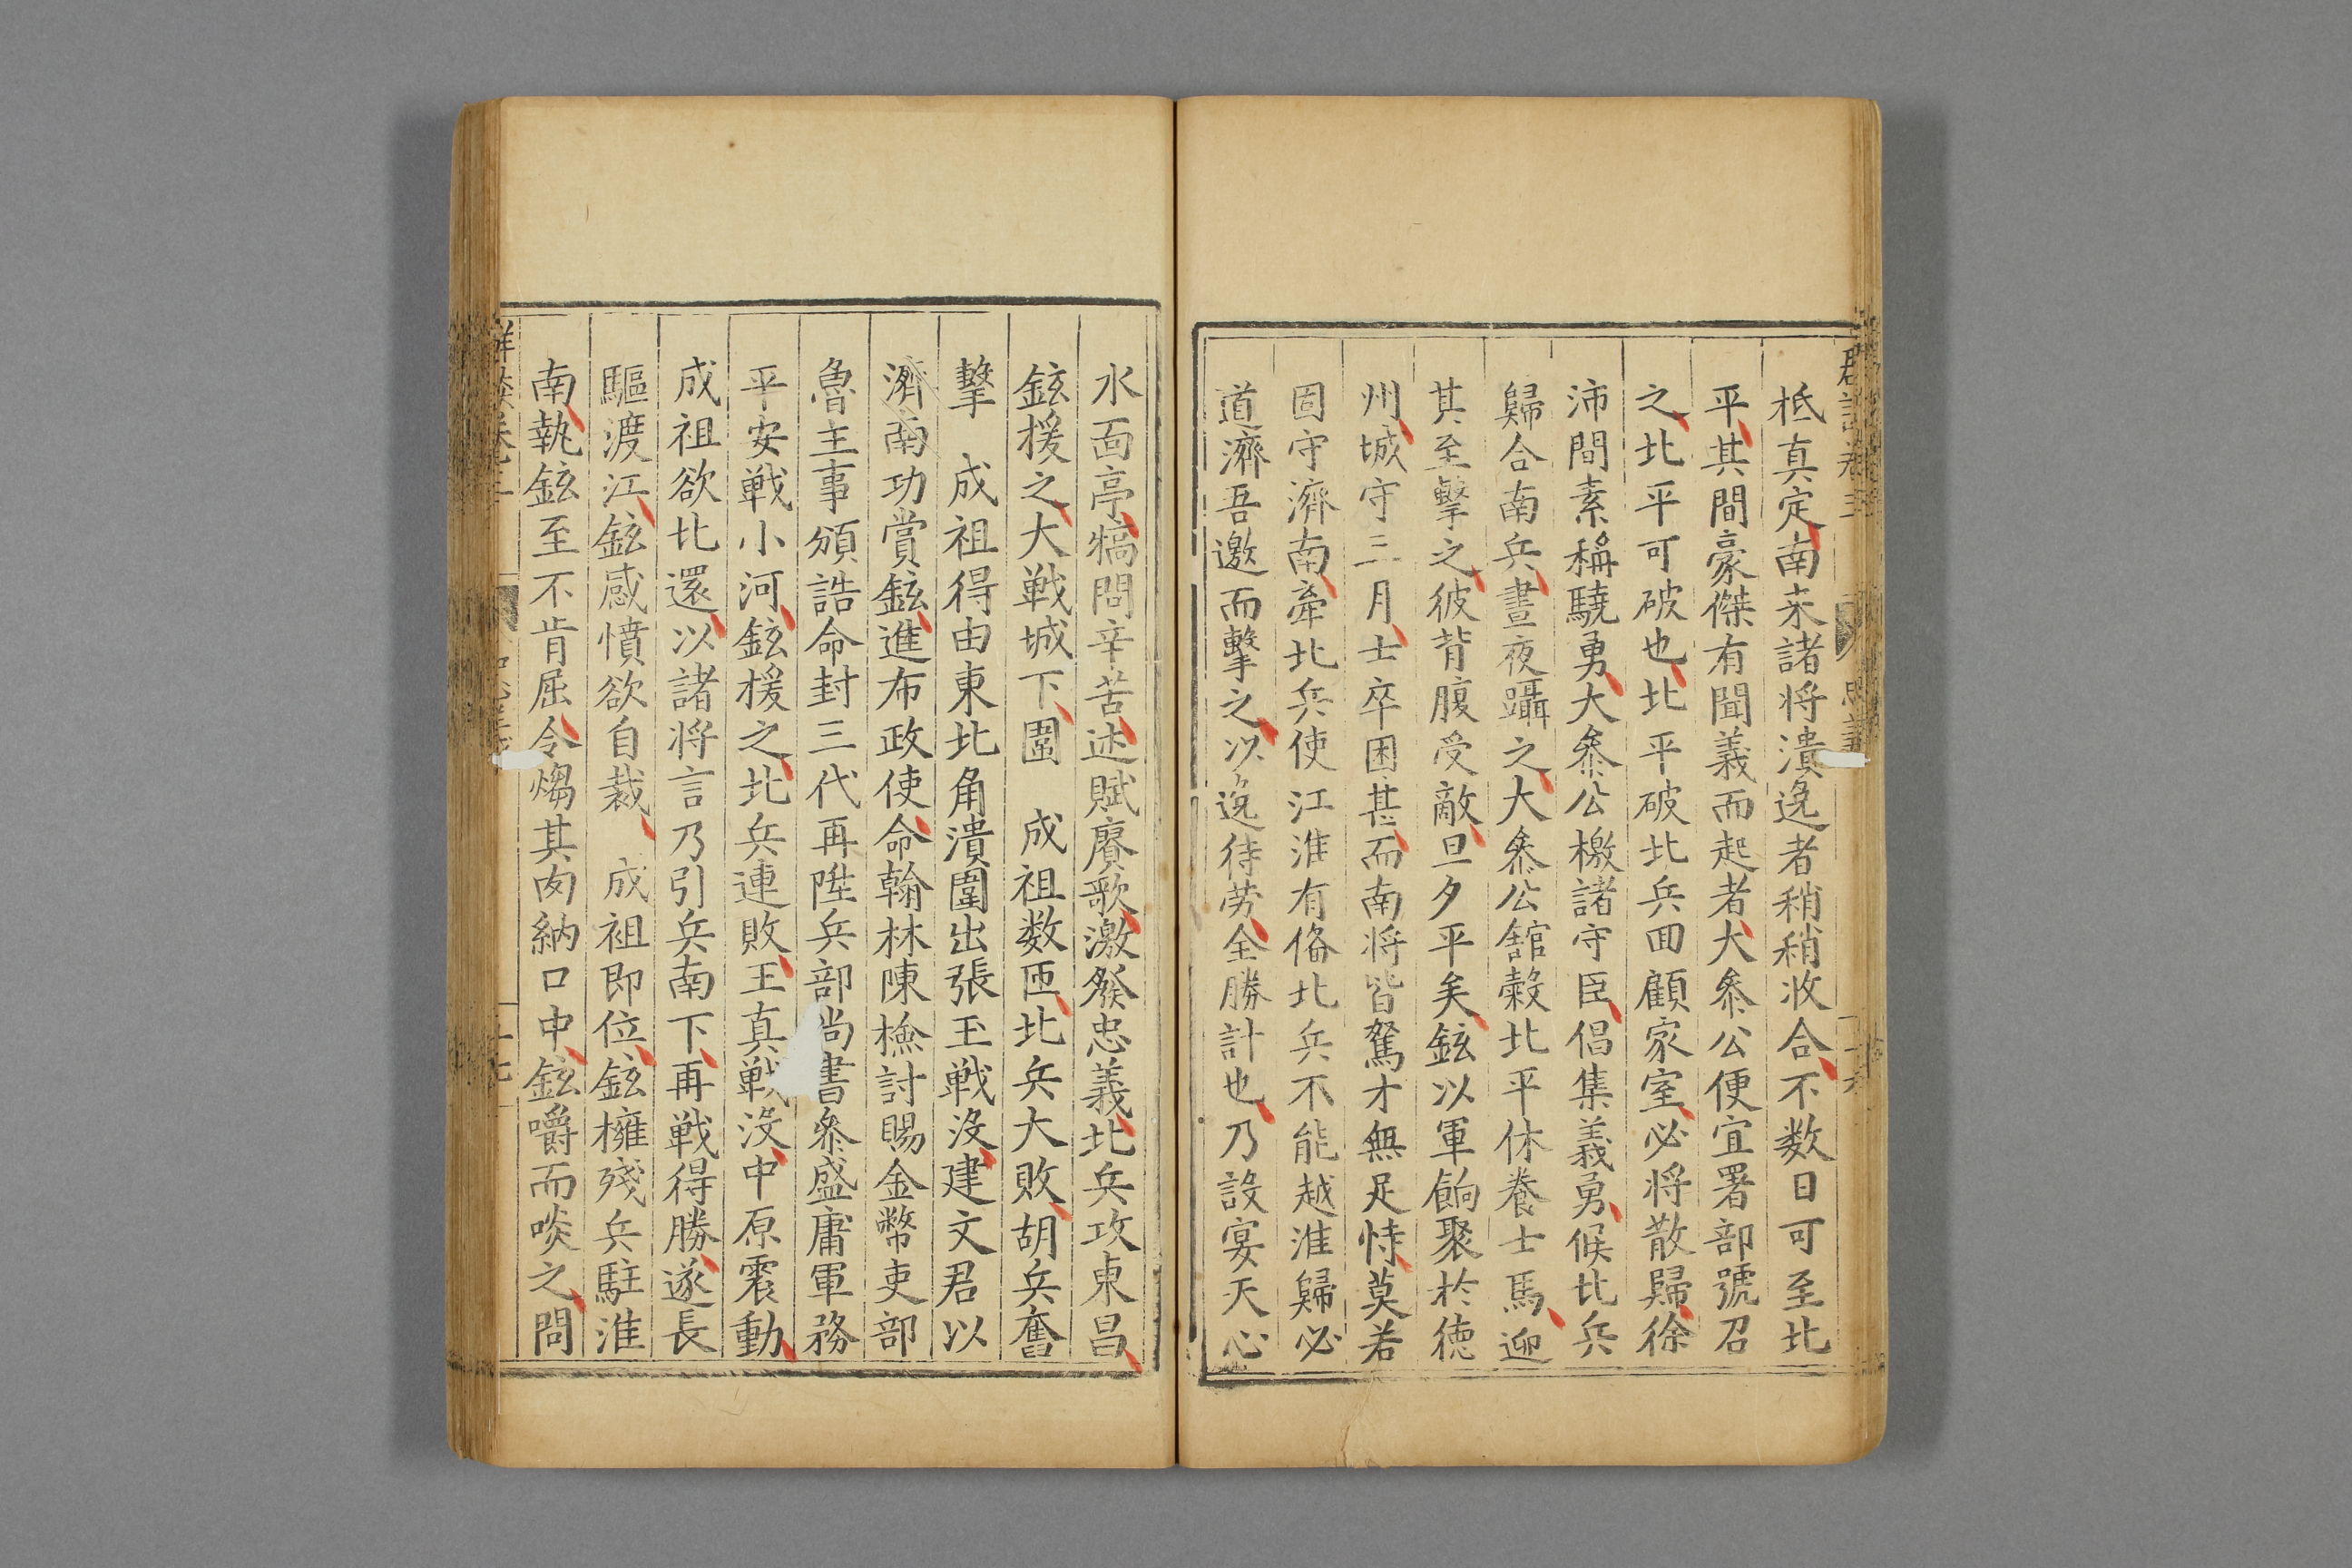 抵真定南來諸将潰逸者稍稍收合不数日可至北
平其間豪傑有聞義而起者大叅公便宜署部號召
之北平可破也北平破北兵回顧家室必将散歸徐
沛間素稱驍勇大叅公檄諸守臣倡集義勇候北兵
歸合南兵晝夜躡之大叅公舘糓北平休養士馬迎
其至擊之彼背腹受敵旦夕平矣鉉以軍餉聚於德
州城守三月士卒困甚而南将皆駑才無足恃莫若
固守濟南牽北兵使江淮有俻北兵不能越淮歸必
道濟吾邀而擊之以逸待劳全勝計也乃設宴天心
水面亭犒問辛苦述賦賡歌激發忠義北兵攻東昌
鉉援之大戦城下圍 成祖数匝北兵大敗胡兵奮
擊 成祖得由東北角潰圍出張玉戦没建文君以
濟南功賞鉉進布政使命翰林陳檢討賜金幣吏部
魯主事頒誥命封三代再陞兵部尚書叅盛庸軍務
平安戦小河鉉援之北兵連敗王真戦没中原震動
成祖欲北還以諸将言乃引兵南下再戦得勝遂長
驅渡江鉉感憤欲自裁 成祖即位鉉擁殘兵駐淮
南執鉉至不肯屈令煼其肉納口中鉉嚼而啖之問